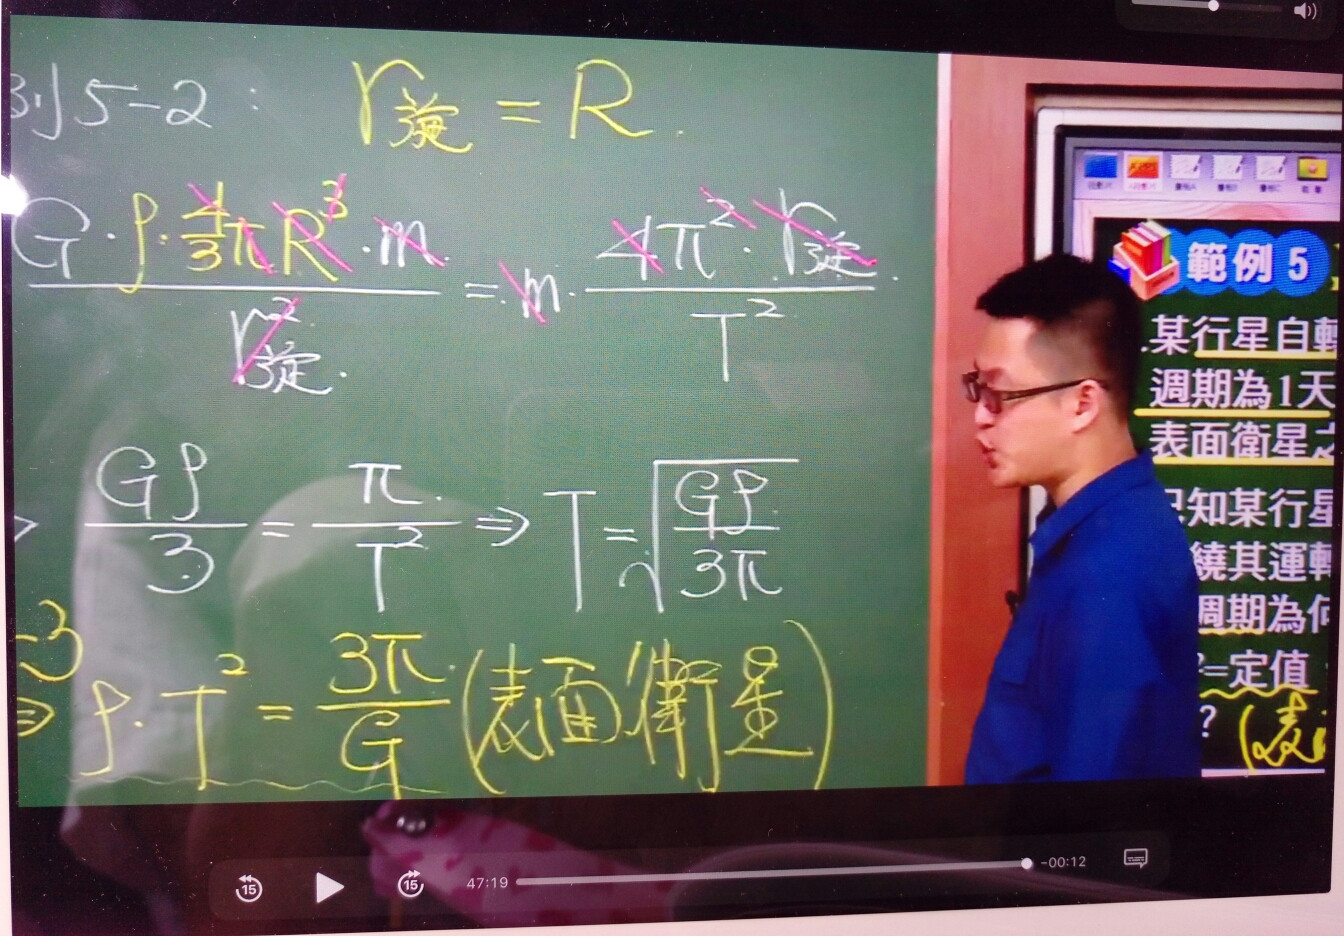 例5-2: r旋 = R.
G·ρ·4/3πR³·m / r旋². = m· 4π²·r旋 / T².
⇒ Gρ/3 = π/T² ⇒ T = √(Gρ/3π)
-3
⇒ ρ·T² = 3π/G (表面衛星)
範例 5
某行星自轉
週期為1天
表面衛星之
已知某行星
繞其運轉
週期為何
=定值
? (表
15
15
47:19
-00:12